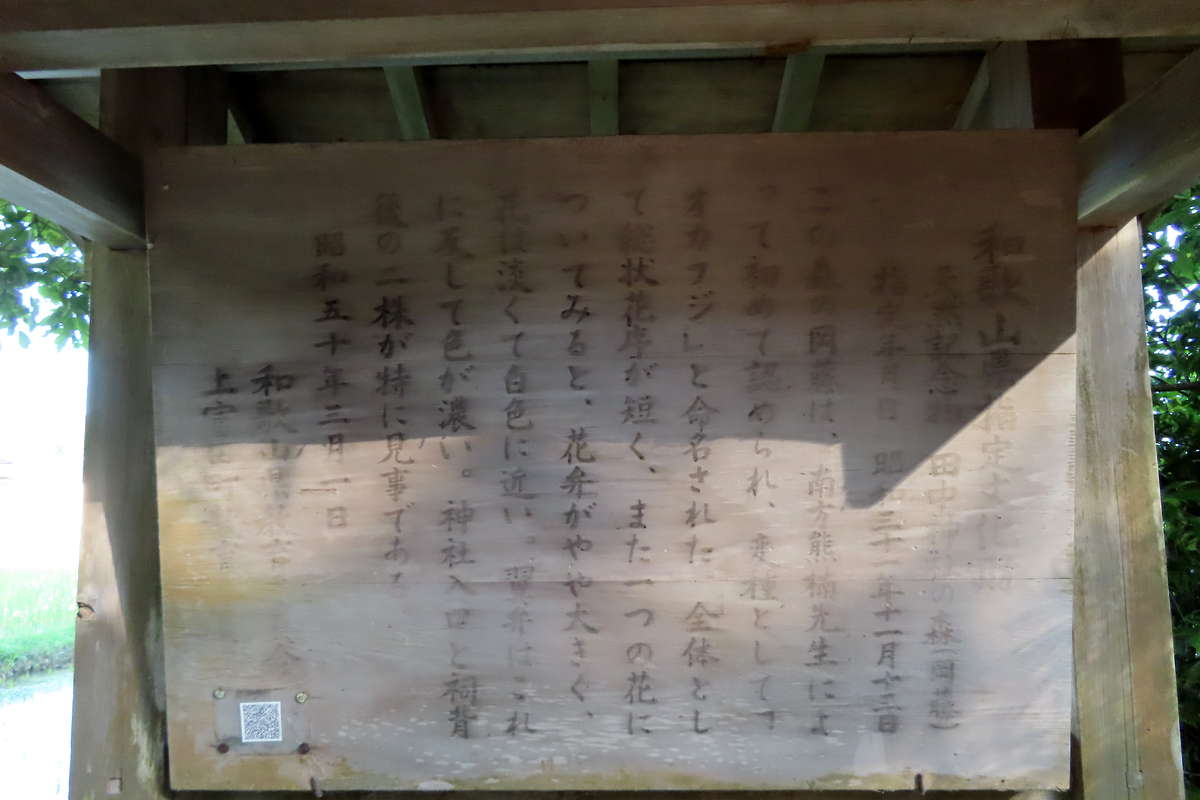 和歌山県指定文化財
天然記念物 田中神社の森(岡藤)
指定年月日 昭和三十一年十一月十三日
この森の岡藤は、南方熊楠先生によ
って初めて認められ、変種として「
オカフジ」と命名された 全体とし
て総状花序が短く、また一つの花に
ついてみると、花弁がやや大きく、
花は淡くて白色に近い。翼弁はこれ
に反して色が濃い。神社入口と祠背
後の二株が特に見事である
昭和五十年三月一日
和歌山県教育委員会
上富田町